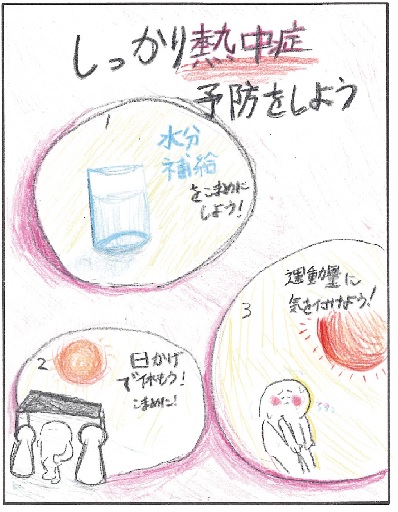 しっかり熱中症
予防をしよう
1
水分
補給
をこまめに
しよう!
2
日かげ
で休もう!
こまめに!
3
運動量に
気を付けよう!